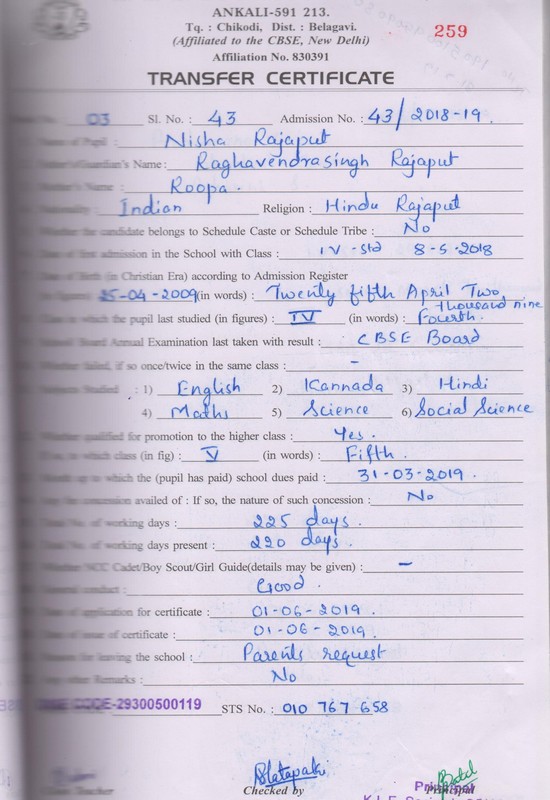 ANKALI-591 213.
Tq. : Chikodi, Dist. : Belagavi.
(Affiliated to the CBSE, New Delhi)
259
Affiliation No. 830391
TRANSFER CERTIFICATE
03 Sl. No. : 43 Admission No. : 43/2018-19.
Name of Pupil : Nisha Rajaput
Guardian's Name : Raghavendrasingh Rajaput
Name : Roopa .
Indian Religion : Hindu Rajaput
Whether the candidate belongs to Schedule Caste or Schedule Tribe : No
Date of first admission in the School with Class : IV - Std 8-5-2018
Date of Birth (in Christian Era) according to Admission Register
25-04-2009 (in words) : Twenty fifth April Two
thousand nine
in which the pupil last studied (in figures) : IV (in words) : Fourth.
Board Annual Examination last taken with result : CBSE Board
Whether failed, if so once/twice in the same class : -
Studied : 1) English 2) Kannada 3) Hindi
4) Maths 5) Science 6) Social Science
Whether qualified for promotion to the higher class : Yes .
which class (in fig) : V (in words) : Fifth .
to which the (pupil has paid) school dues paid : 31-03-2019 .
concession availed of : If so, the nature of such concession : No
No. of working days : 225 days .
No. of working days present : 220 days .
Whether NCC Cadet/Boy Scout/Girl Guide(details may be given) : -
General conduct : Good .
Date of application for certificate : 01-06-2019 .
Date of issue of certificate : 01-06-2019 .
Reason for leaving the school : Parents request
Any other Remarks : No
CODE-29300500119 STS No. : 010 767 658
Teacher Checked by Principal